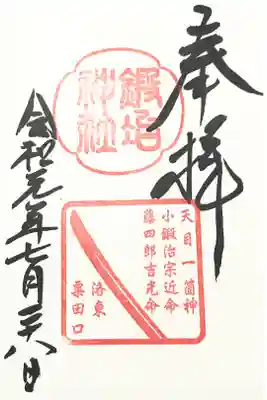 奉拝
鍛冶
神社
天目一箇神
小鍛治宗近命
藤四郎吉光命
洛東
粟田口
令和元年七月二十八日